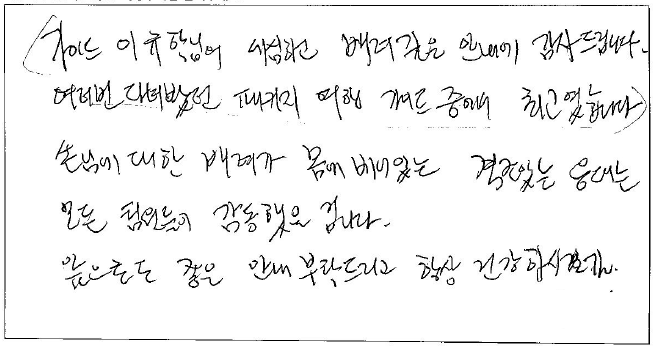 (가이드 이규학님의 세심하고 배려깊은 안내에 감사드립니다.
여러번 다녀봤던 패키지 여행 가이드 중에서 최고였습니다)
손님에 대한 배려가 몸에 배어있는 격조있는 응대는
모든 팀원들이 감동했을 겁니다.
앞으로도 좋은 안내 부탁드리고 항상 건강하시길.